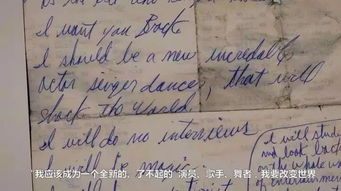 I want you Back
I should be a new, incredable
actor singer dancer, that will
shock the World.
I will do no interviews
I will be magic.
I will study
and look back
on the whole world
of entertainment
“我应该成为一个全新的、了不起的 演员、歌手、舞者，我要改变世界